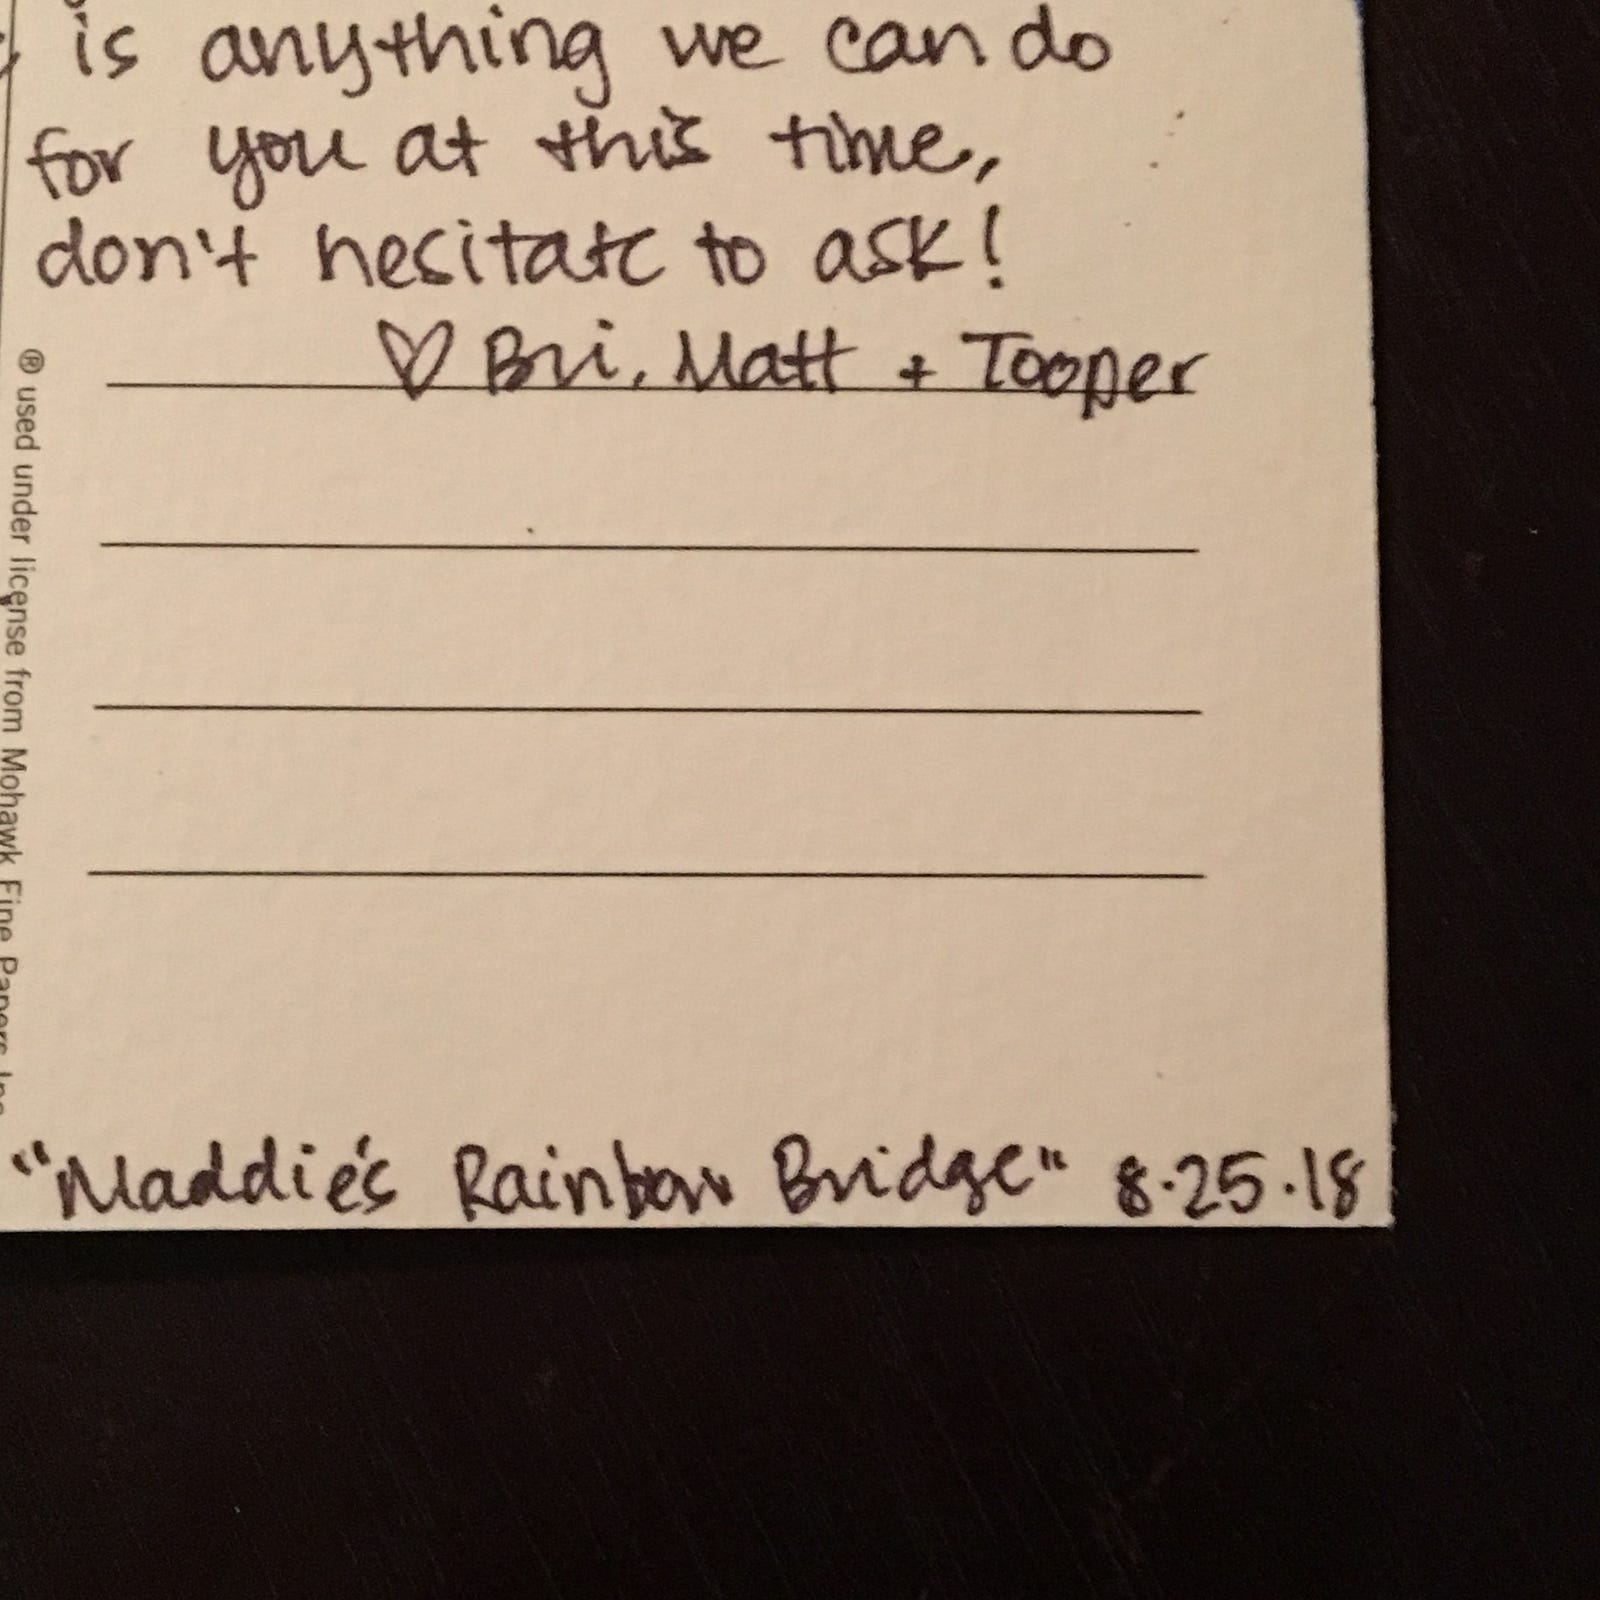 is anything we can do
for you at this time,
don't hesitate to ask!
♡ Bri, Matt + Tooper
® used under license from Mohawk Fine Papers Inc
"Maddie's Rainbow Bridge" 8.25.18